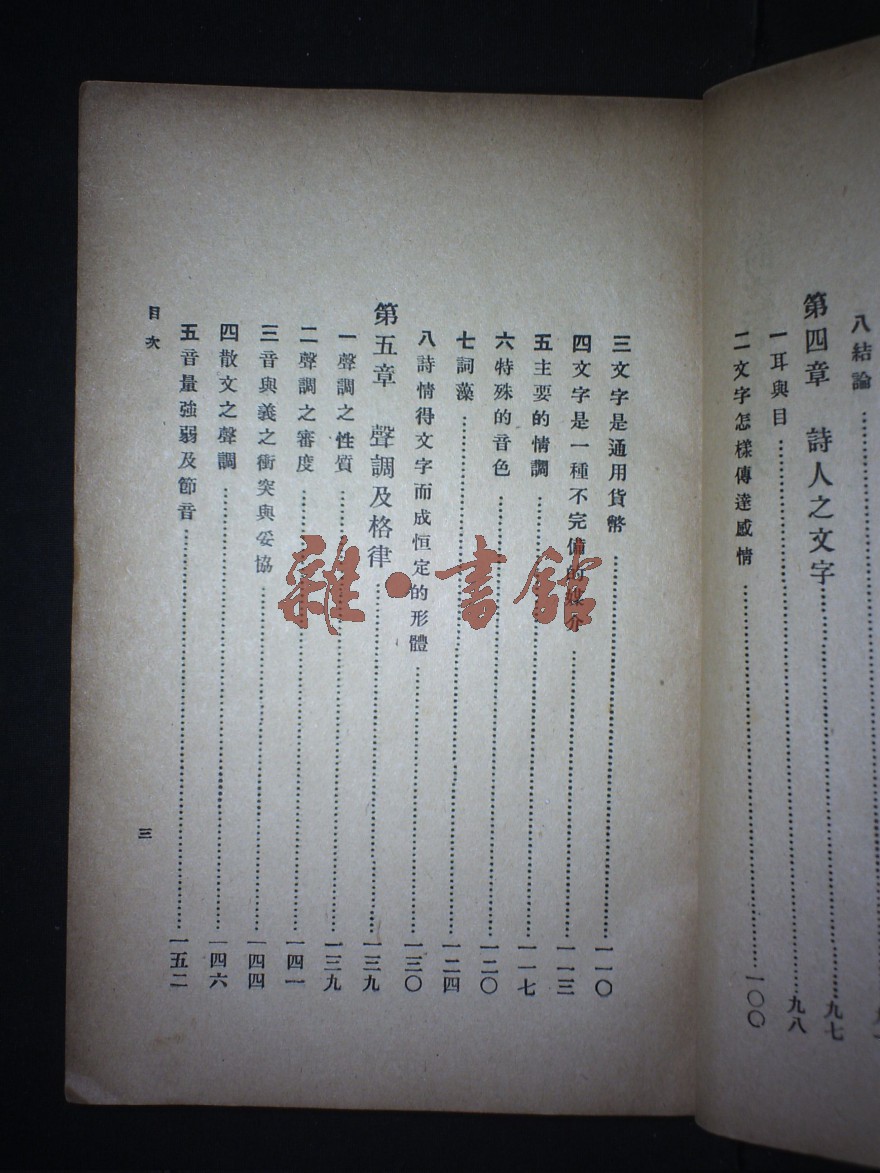 八結論
第四章　詩人之文字……九七
一耳與目……九八
二文字怎樣傳達感情……一〇〇
三文字是通用貨幣……一一〇
四文字是一種不完備的媒介……一一三
五主要的情調……一一七
六特殊的音色……一二〇
七詞藻……一二四
八詩情得文字而成恒定的形體……一三〇
第五章　聲調及格律……一三九
一聲調之性質……一三九
二聲調之審度……一四一
三音與義之衝突與妥協……一四四
四散文之聲調……一四六
五音量強弱及節音……一五二
目次
三
雜·書館